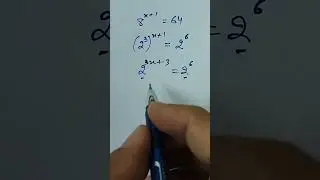 8^{x+1} = 64
(2^3)^{x+1} = 2^6
2^{3x+3} = 2^6